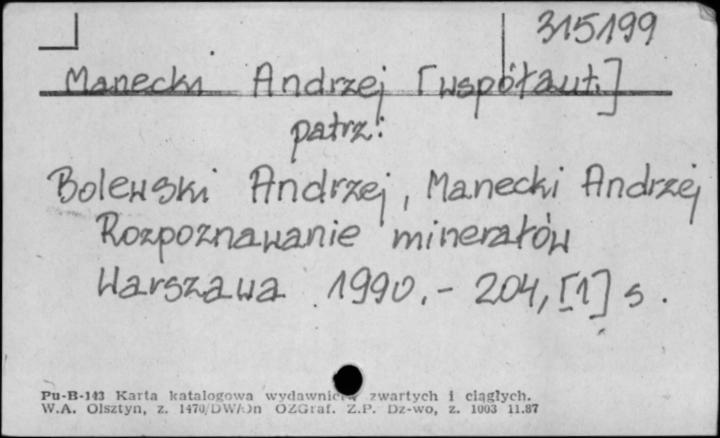 315199
Manecki Andrzej [współaut.]
patrz:
Bolewski Andrzej, Manecki Andrzej
Rozpoznawanie minerałów
Warszawa 1990.- 204, [1] s.
Pu-B-143 Karta katalogowa wydawnictw zwartych i ciągłych.
W.A. Olsztyn, z. 1470/DW/Dn OZGraf. Z.P. Dz-wo, z. 1003 11.87